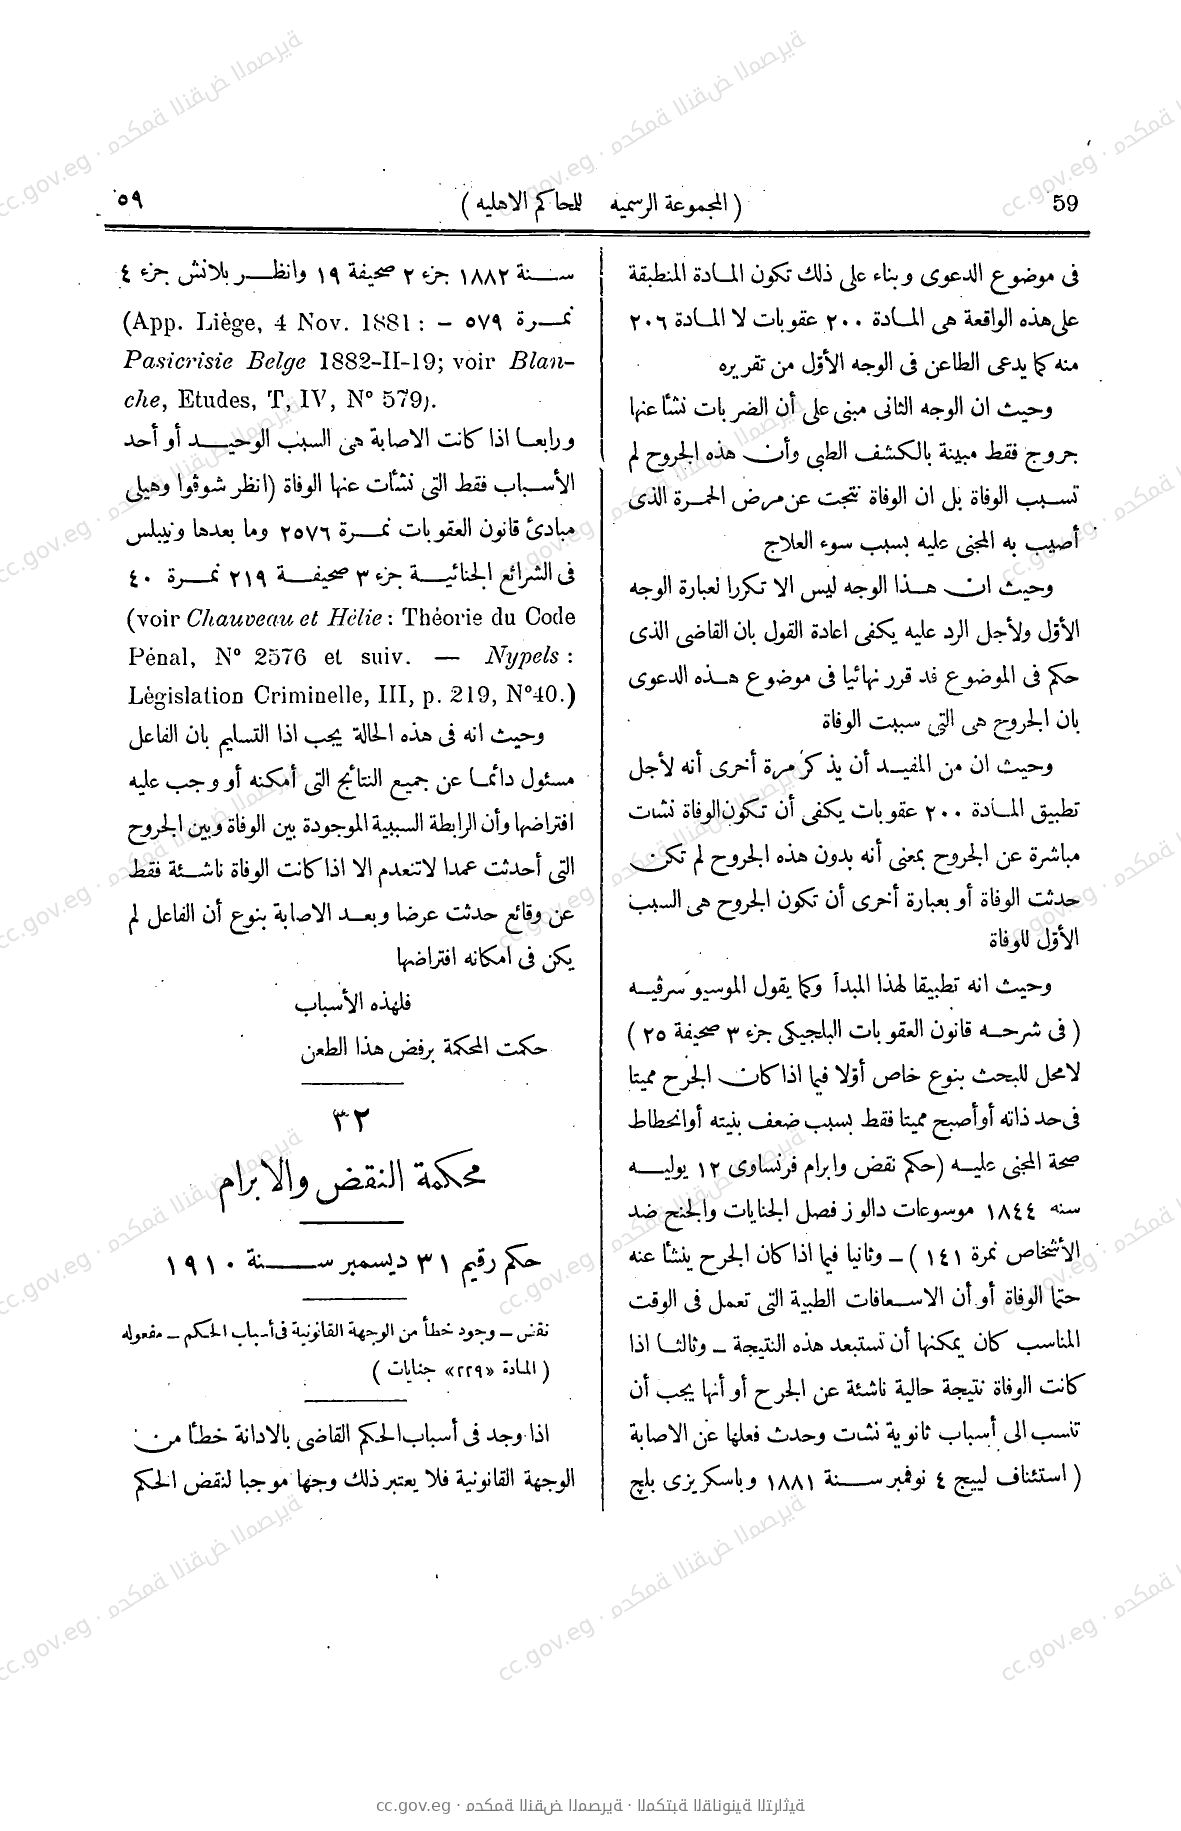 59 ( المجموعة الرسميه للمحاكم الاهليه ) ٥٩
فى موضوع الدعوى وبناء على ذلك تكون المادة المنطبقة
على هذه الواقعة هى المادة ٢٠٠ عقوبات لا المادة ٢٠٦
منه كما يدعى الطاعن فى الوجه الأوّل من تقريره
وحيث ان الوجه الثانى مبنى على أن الضربات نشأ عنها
جروح فقط مبينة بالكشف الطبى وأن هذه الجروح لم
تسبب الوفاة بل ان الوفاة نتجت عن مرض الحمرة الذى
أصيب به المجنى عليه بسبب سوء العلاج
وحيث ان هذا الوجه ليس الا تكررا لعبارة الوجه
الأوّل ولأجل الرد عليه يكفى اعادة القول بان القاضى الذى
حكم فى الموضوع قد قرر نهائيا فى موضوع هذه الدعوى
بان الجروح هى التى سببت الوفاة
وحيث ان من المفيد أن يذكر مرة أخرى أنه لأجل
تطبيق المادة ٢٠٠ عقوبات يكفى أن تكون الوفاة نشأت
مباشرة عن الجروح بمعنى أنه بدون هذه الجروح لم تكن
حدثت الوفاة أو بعبارة أخرى أن تكون الجروح هى السبب
الأوّل للوفاة
وحيث انه تطبيقا لهذا المبدأ وكما يقول الموسيو سرڤيه
( فى شرحه قانون العقوبات البلجيكى جزء ٣ صحيفة ٢٥ )
لا محل للبحث بنوع خاص أوّلا فيما اذا كان الجرح مميتا
فى حد ذاته أو أصبح مميتا فقط بسبب ضعف بنيته أو انحطاط
صحة المجنى عليه (حكم نقض وابرام فرنساوى ١٢ يوليه
سنه ١٨٤٤ موسوعات دالوز فصل الجنايات والجنح ضد
الأشخاص نمرة ١٤١ ) – وثانيا فيما اذا كان الجرح ينشأ عنه
حتما الوفاة أو أن الاسعافات الطبية التى تعمل فى الوقت
المناسب كان يمكنها أن تستبعد هذه النتيجة – وثالثا اذا
كانت الوفاة نتيجة حالية ناشئة عن الجرح أو أنها يجب أن
تنسب الى أسباب ثانوية نشأت وحدث فعلها عن الاصابة
( استئناف لييج ٤ نوفمبر سنة ١٨٨١ وباسكريزى بلچ
سنة ١٨٨٢ جزء ٢ صحيفة ١٩ وانظر بلانش جزء ٤
نمرة ٥٧٩ – (App. Liège, 4 Nov. 1881 :
Pasicrisie Belge 1882-II-19; voir Blan-
che, Etudes, T, IV, N° 579).
ورابعا اذا كانت الاصابة هى السبب الوحيد أو أحد
الأسباب فقط التى نشأت عنها الوفاة (انظر شوڤوا وهيلى
مبادئ قانون العقوبات نمرة ٢٥٧٦ وما بعدها ونيبلس
فى الشرائع الجنائية جزء ٣ صحيفة ٢١٩ نمرة ٤٠
(voir Chauveau et Hélie : Théorie du Code
Pénal, N° 2576 et suiv. — Nypels :
Législation Criminelle, III, p. 219, N°40.)
وحيث انه فى هذه الحالة يجب اذا التسليم بان الفاعل
مسئول دائما عن جميع النتائج التى أمكنه أو وجب عليه
افتراضها وأن الرابطة السببية الموجودة بين الوفاة وبين الجروح
التى أحدثت عمدا لا تنعدم الا اذا كانت الوفاة ناشئة فقط
عن وقائع حدثت عرضا وبعد الاصابة بنوع أن الفاعل لم
يكن فى امكانه افتراضها
فلهذه الأسباب
حكمت المحكمة برفض هذا الطعن
٣٢
محكمة النقض والابرام
حكم رقيم ٣١ ديسمبر سنة ١٩١٠
نقض – وجود خطأ من الوجهة القانونية فى أسباب الحكم – مفعوله
( المادة «٢٢٩» جنايات )
اذا وجد فى أسباب الحكم القاضى بالادانة خطأ من
الوجهة القانونية فلا يعتبر ذلك وجها موجبا لنقض الحكم
cc.gov.eg · محكمة النقض المصرية · المكتبة القانونية التراثية